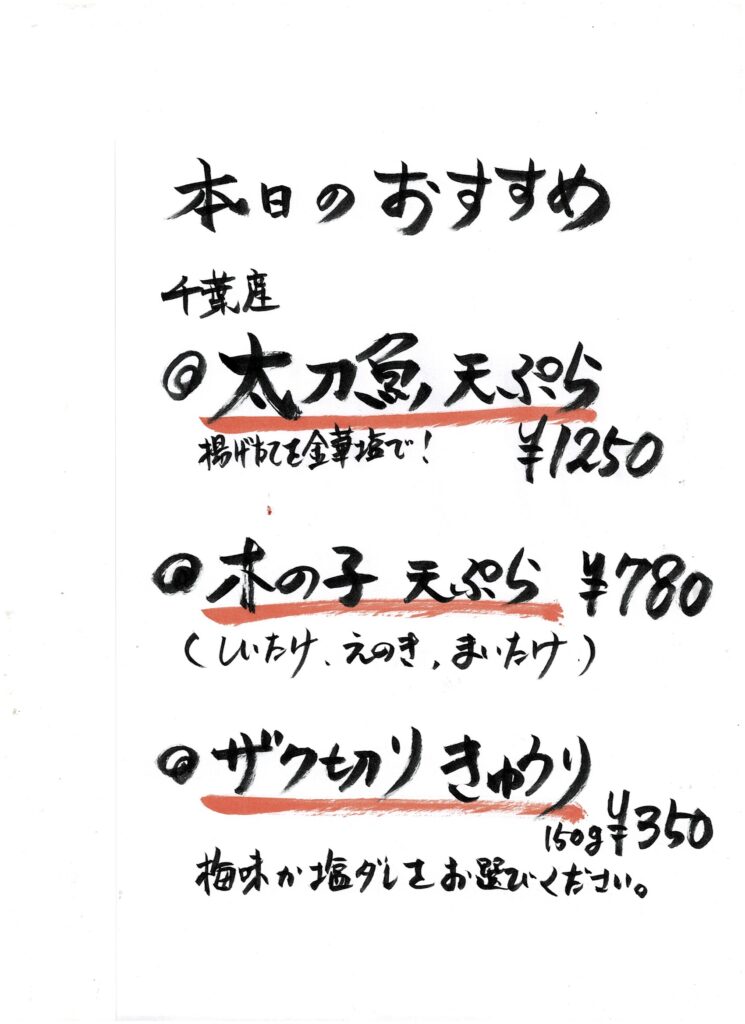 本日のおすすめ
千葉産
◎太刀魚 天ぷら
揚げたてを金華塩で!
¥1250
◎木の子 天ぷら ¥780
(しいたけ、えのき、まいたけ)
◎ザク切りきゅうり
150g ¥350
梅味か塩ダレをお選びください。